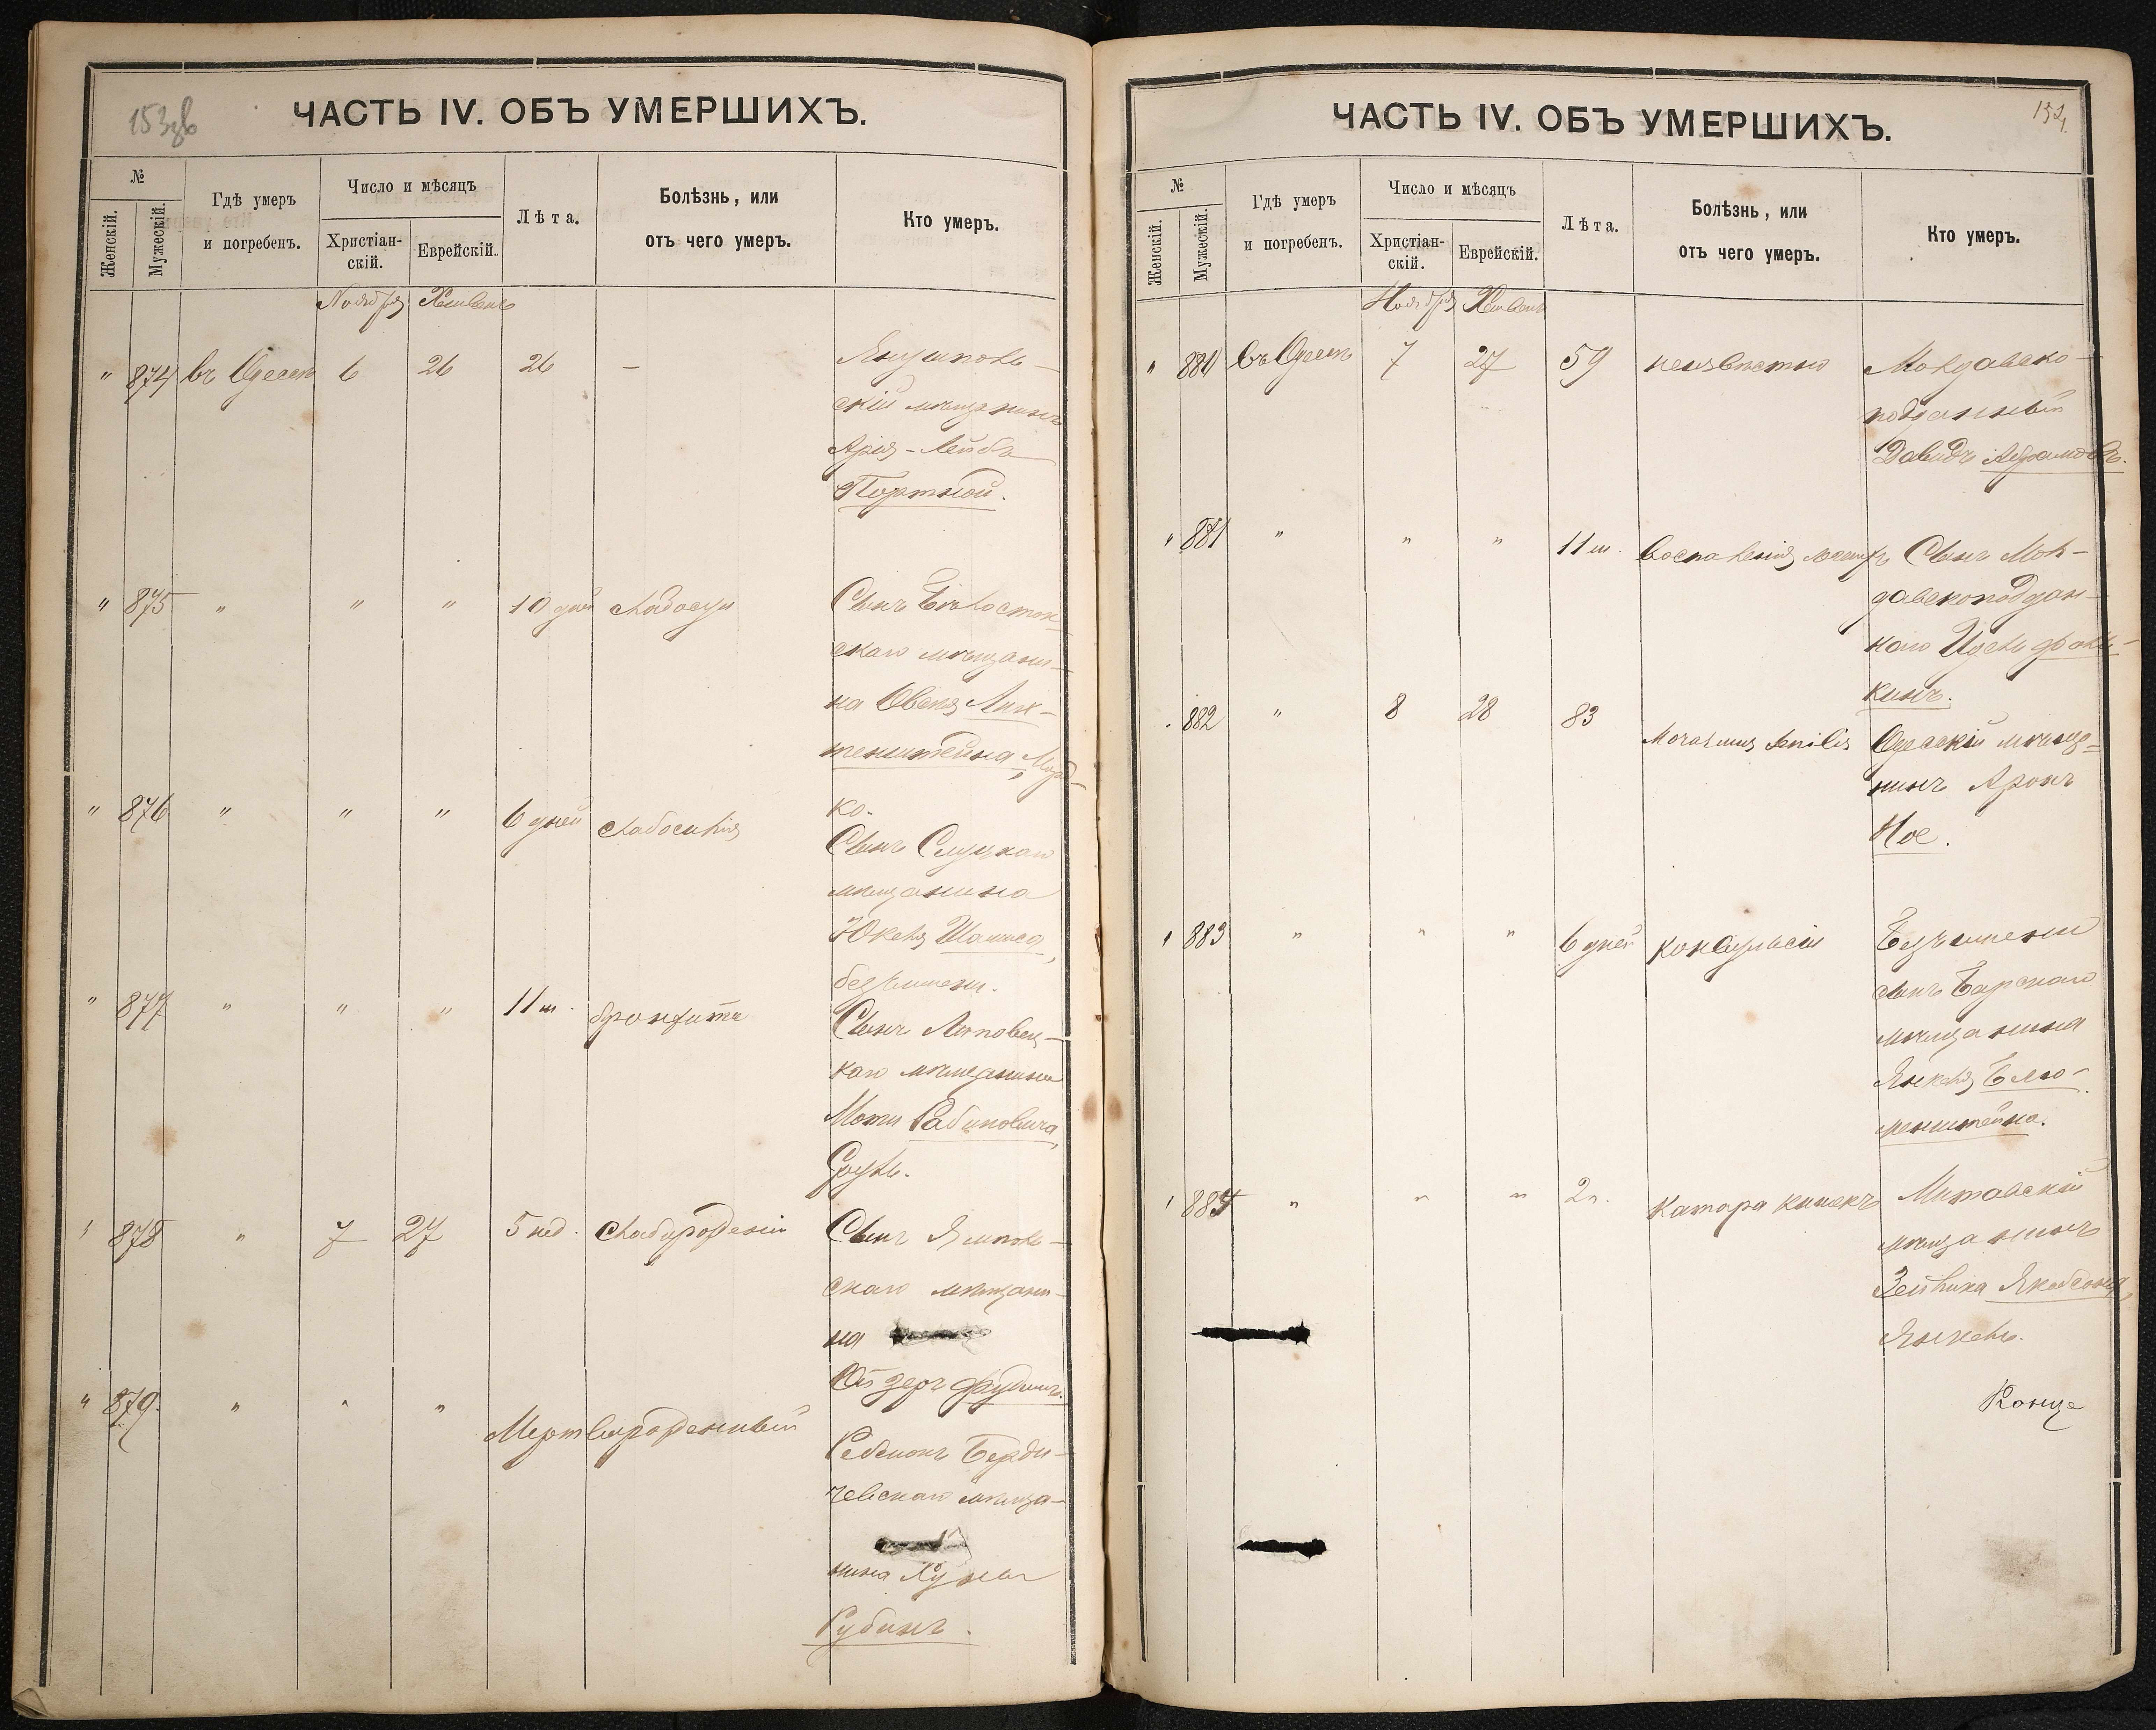 153зв
ЧАСТЬ IV. ОБЪ УМЕРШИХЪ.
№
Женскій.
Мужескій.
Гдѣ умеръ
и погребенъ.
Число и мѣсяцъ
Христіан-
скій.
Еврейскій.
Лѣта.
Болѣзнь, или
отъ чего умеръ.
Кто умеръ.
Ноября Хешвенъ
" 874 въ Одессѣ 6 26 26 —
скій мѣщанинъ
Арія-Лейбъ
Портной.
" 875 " " " 10 дней слабости Сынъ Бѣлосток-
скаго мѣщани-
на Овсея Лих-
тенштейна,Морд-
ко.
" 876 " " " 6 дней слабосилія
Сынъ Слуцкаго
мѣщанина
Юкеля
безъимени.
" 877 " " " 11 м. бронхитъ
Сынъ Липовец-
каго мѣщанина
Моти Рабиновича,
Сруль.
" 878 " 7 27 5 нед. слаборожденій Сынъ Ямполь-
скаго мѣщани-
на
Ойзеръ
" 879. " " " Мертворожденный
Ребенокъ Берди-
чевскаго мѣща-
нина
Рубинъ.
ЧАСТЬ IV. ОБЪ УМЕРШИХЪ.
154.
№
Женскій.
Мужескій.
Гдѣ умеръ
и погребенъ.
Число и мѣсяцъ
Христіан-
скій.
Еврейскій.
Лѣта.
Болѣзнь, или
отъ чего умеръ.
Кто умеръ.
Ноября Хешвенъ
" 880 въ Одессѣ 7 27 59 неизвѣстно Молдавско-
подданный
Давидъ Абрамовъ.
" 881 " " " 11 м. Воспаленія Сынъ Мол-
давскоподдан-
наго
кинъ.
882 " 8 28 83 Marasmus senilis
Одесскій мѣща-
нинъ Аронъ
Ное.
" 883 " " " 6 дней конвульсіи Безъимени
сынъ Барскаго
мѣщанина
Янкеля Блю-
менштейна.
" 884 " " " 2 л. Катара кишекъ Митавскій
мѣщанинъ
Зелика Якобсона,
Янкель.